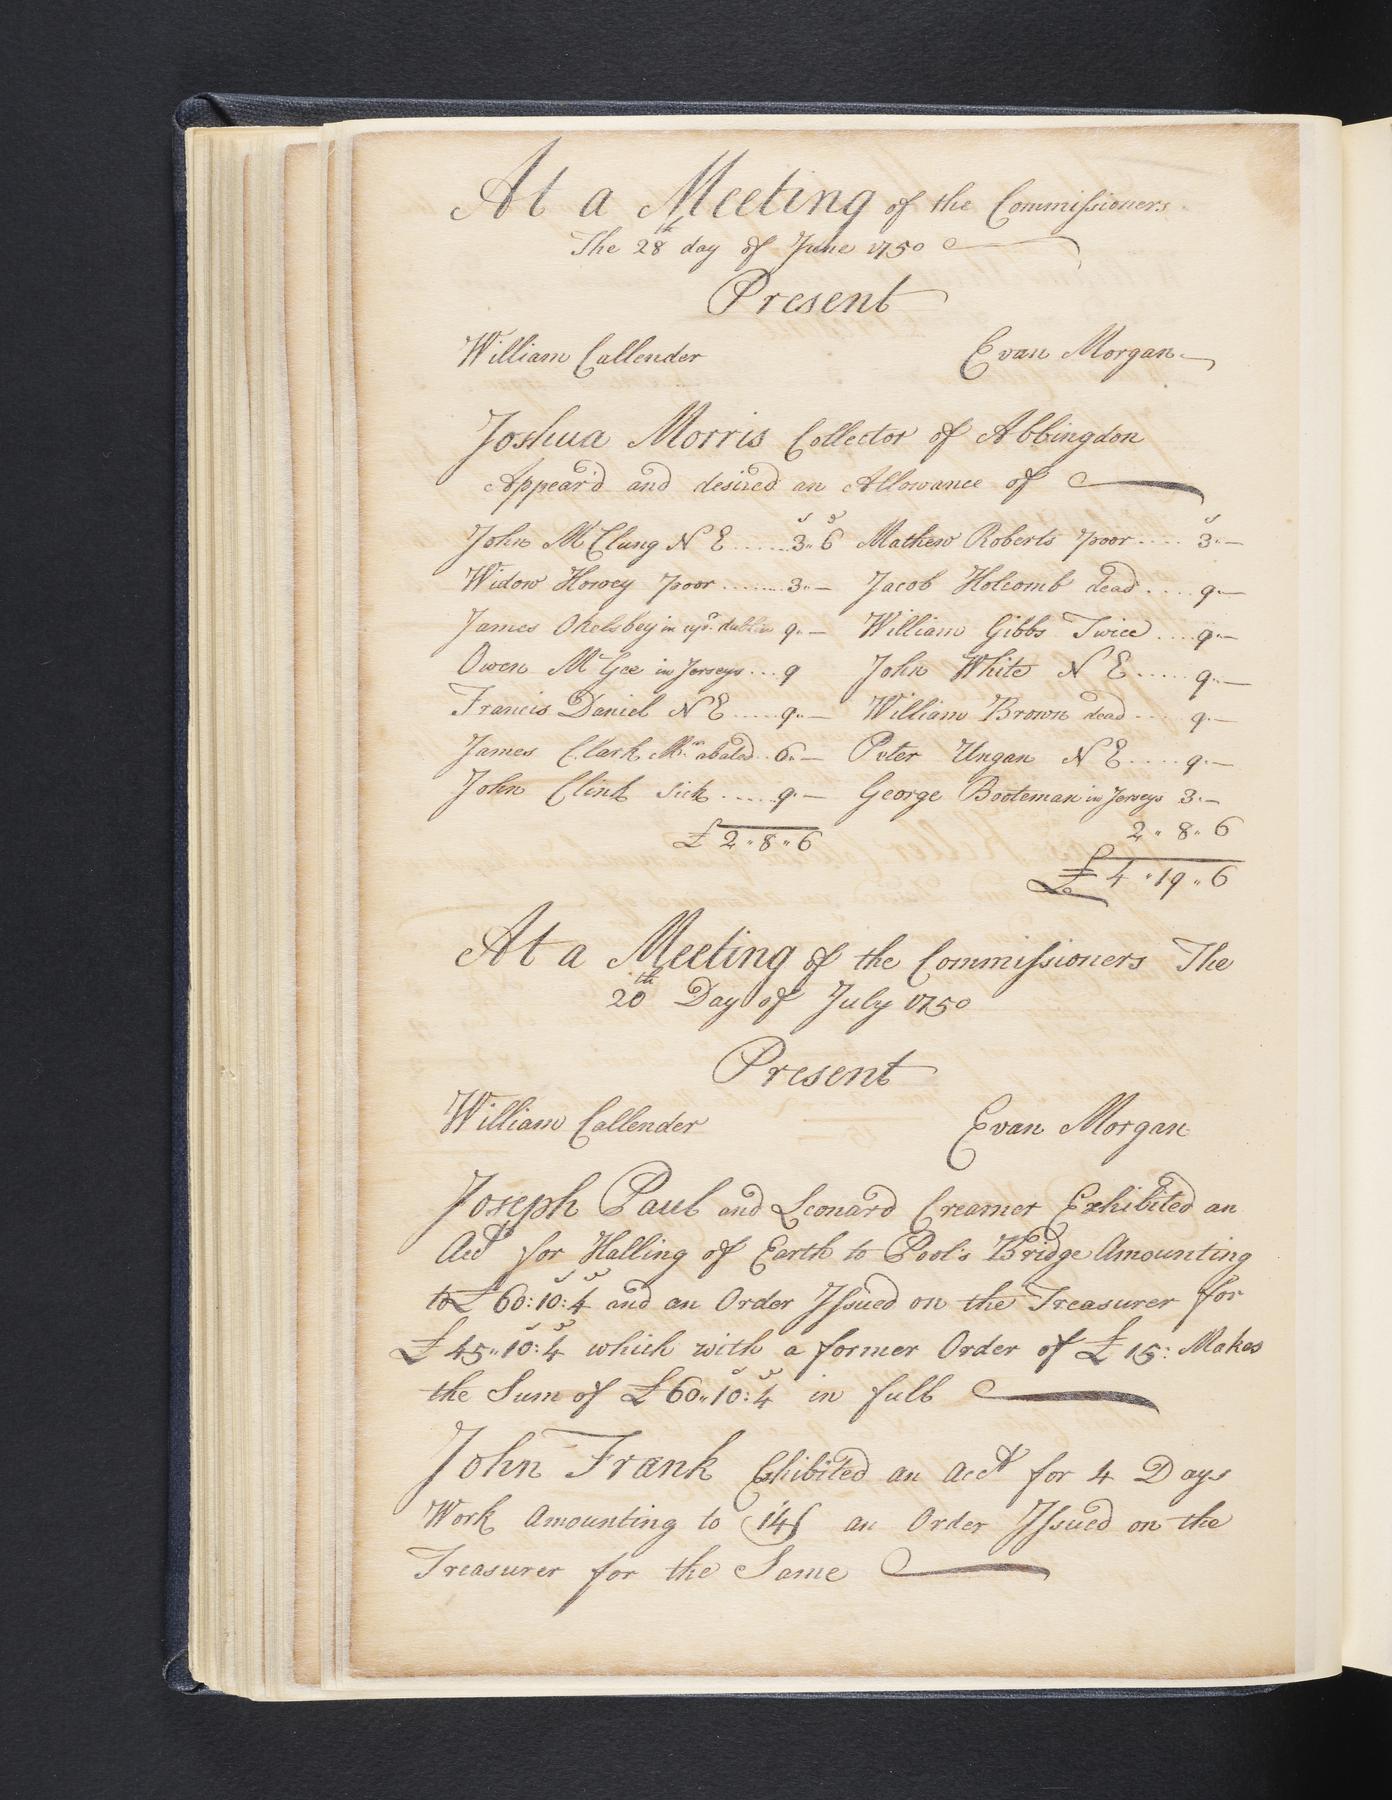 At a Meeting of the Commissioners
The 28th day of June 1750
Present
William Callender Evan Morgan
Joshua Morris Collector of Abbingdon
Appear'd and desired an Allowance of
s d s
John McClung N E ...... 3" 6 Mathew Roberts poor .... 3"—
Widow Howey poor ........ 3"— Jacob Holcomb dead .... 9"—
James in upr. dublin 9"— William Gibbs Twice .... 9"—
Owen McGee in Jerseys ... 9 John White N E ..... 9"—
Francis Daniel N E ..... 9"— William Brown dead .... 9"—
James Clark Mr. abated .. 6"— Peter Ungan N E .... 9"—
John Clink Sick ..... 9"— George Booteman in Jerseys 3"—
£ 2 " 8 " 6 2 " 8 " 6
£ 4 " 19 " 6
At a Meeting of the Commissioners The
20th Day of July 1750
Present
William Callender Evan Morgan
Joseph Paul and Leonard Creamer Exhibited an
Acct for Halling of Earth to Pool's Bridge Amounting
to £ 60:10:4 and an Order Issued on the Treasurer for
£ 45"10:4 which with a former Order of £ 15: Makes
the Sum of £ 60"10:4 in full
John Frank Ehibited an acct for 4 Days
Work Amounting to 14/ an Order Issued on the
Treasurer for the Same